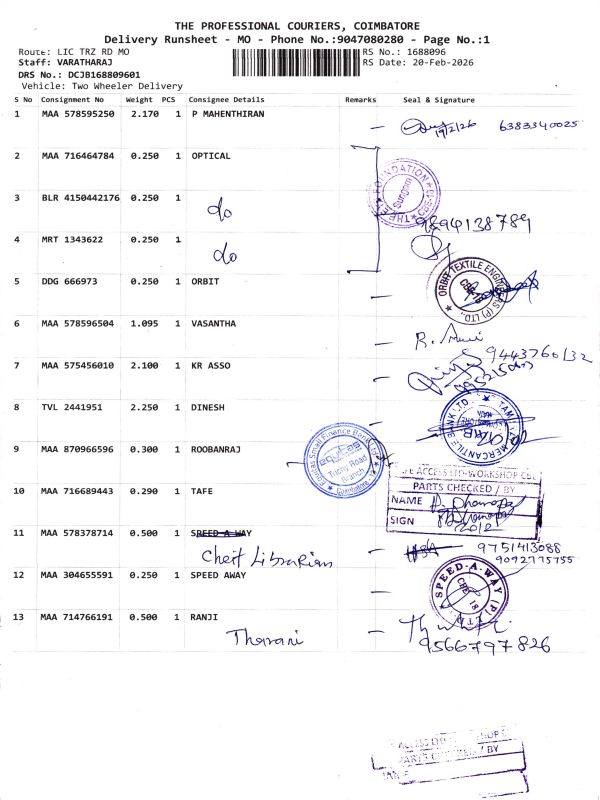 THE PROFESSIONAL COURIERS, COIMBATORE
Delivery Runsheet - MO - Phone No.:9047080280 - Page No.:1
Route: LIC TRZ RD MO
RS No.: 1688096
Staff: VARATHARAJ
RS Date: 20-Feb-2026
DRS No.: DCJB168809601
Vehicle: Two Wheeler Delivery
S No Consignment No Weight PCS Consignee Details Remarks Seal & Signature
1 MAA 578595250 2.170 1 P MAHENTHIRAN
19/2/26 6383340025
2 MAA 716464784 0.250 1 OPTICAL
THE EYE FOUNDATION
Sungam
3 BLR 4150442176 0.250 1
do
9894138789
4 MRT 1343622 0.250 1
do
5 DDG 666973 0.250 1 ORBIT
ORBIT TEXTILE ENGINEERS (P) LTD.
6 MAA 578596504 1.095 1 VASANTHA
R.
9443760132
7 MAA 575456010 2.100 1 KR ASSO
8 TVL 2441951 2.250 1 DINESH
TAMIL MERCANTILE BANK LTD.
9 MAA 870966596 0.300 1 ROOBANRAJ
Equitas Small Finance Bank Ltd
equitas
Trichy Road
Branch
Coimbatore
ACCESS LTD-WORKSHOP CBE
PARTS CHECKED / BY
10 MAA 716689443 0.290 1 TAFE
NAME
SIGN
11 MAA 578378714 0.500 1 SPEED A WAY
Chert Librarian
9751413088
9092775755
12 MAA 304655591 0.250 1 SPEED AWAY
SPEED-A-WAY (P) LTD.
CBE - 18
13 MAA 714766191 0.500 1 RANJI
Tharani
9566797826
PARTS CHECKED / BY